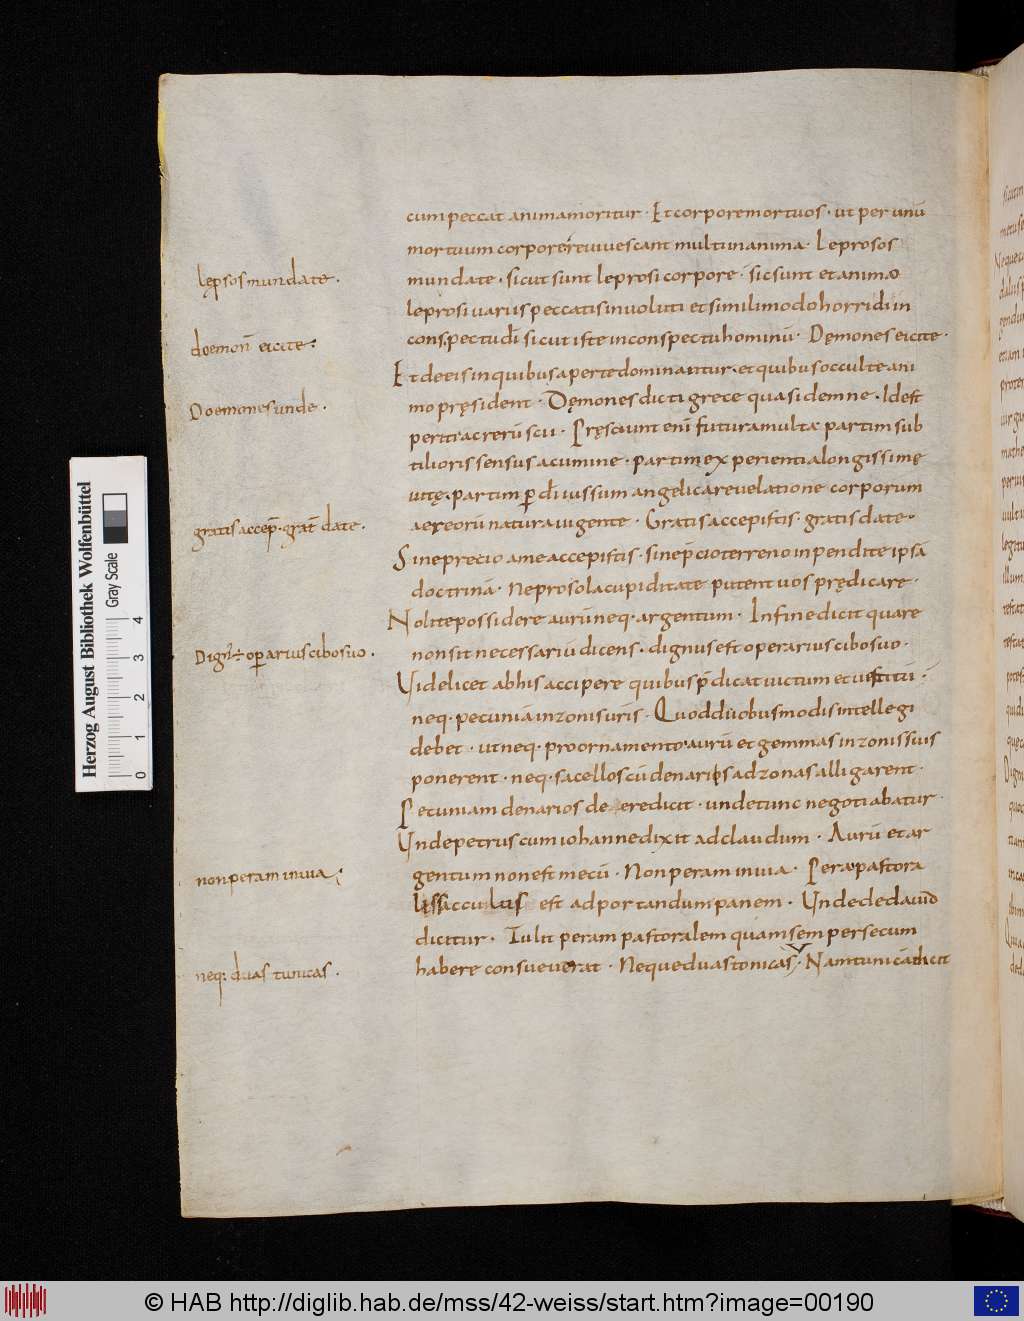 cum peccat anima moritur · Et corpore mortuos · ut per unū
mortuum corpore revivescant multi in anima · Leprosos
lępsos mundate .
mundate · sicut sunt leprosi corpore · sic sunt et animo
leprosi variis peccatis involuti et simili modo horridi in
conspectu dī sicut iste in conspectu hominū · Dęmones eicite ·
doemoñ eicite :
Et de eis in quibus aperte dominantur · et quibus occulte ani
Doemones unde .
mo pręsident · Dęmones dicti grece quasi demne · Idest
periti ac rerū scii · Pręsciunt enī futura multa partim sub
tilioris sensus acumine · partim experientia longissimę
vitę · partim p dī iussum angelica revelatione corporum
aereorū natura vigente · Gratis accepistis · gratis date ·
gratis accep̄ · grat̄ date .
Sine precio a me accepistis · sine p̄cio terreno inpendite ipsā
doctrinā · Ne pro sola cupiditate putent vos prędicare ·
Nolite possidere aurū neq · argentum · In fine dicit quare
non sit necessariū dicens · dignus est operarius cibo suo ·
Dign' ÷ operarius cibo suo .
Videlicet ab his accipere quibus p̄dicat victum et vestitū ·
neq · pecuniā in zonis uris · Quod duobus modis intellegi
debet · ut neq · pro ornamento aurū et gemmas in zonis suis
ponerent · neq · sacellos cū denariis ad zonas alligarent ·
Pecuniam denarios de ere dicit · unde tunc negotiabatur ·
Unde petrus cum iohanne dixit ad claudum · Aurū et ar
gentum non est mecū · Non peram in via · Pera pastora
non peram in via ;
lis sacculus est ad portandum panem · Unde de david
dicitur · Tulit peram pastoralem quam semper secum
habere consueverat · Neque duas tonicas · Nam tunicā dicit
neq; duas tunicas .
Herzog August Bibliothek Wolfenbüttel
Gray Scale
0 1 2 3 4
© HAB http://diglib.hab.de/mss/42-weiss/start.htm?image=00190